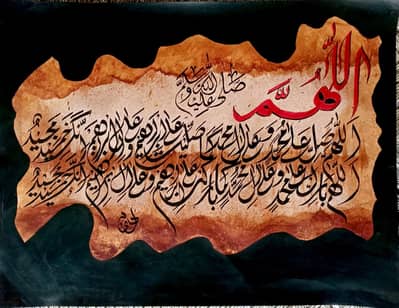 اللهم
اللهم صل على محمد وعلى ال محمد كما صليت على ابراهيم وعلى ال ابراهيم انك حميد مجيد
اللهم بارك على محمد وعلى ال محمد كما باركت على ابراهيم وعلى ال ابراهيم انك حميد مجيد